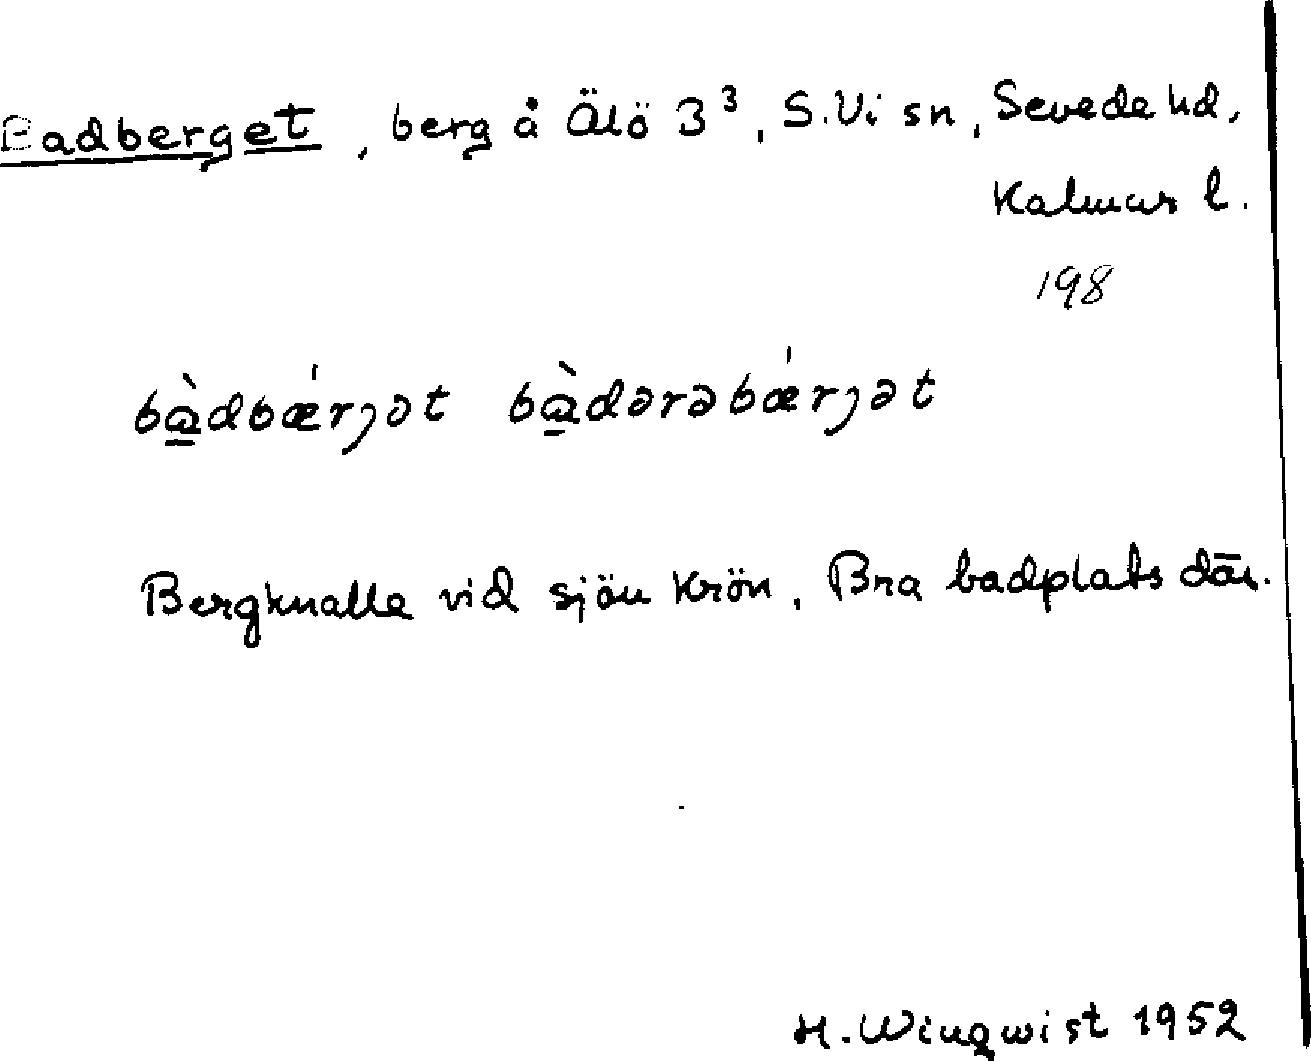 Badberget, berg å Älö 3³, S.Vi sn, Sevede hd,
Kalmar l.
198
bàdbǽrjət bàdərəbǽrjət
Bergknalle vid sjön Krön, Bra badplats där.
H. Winqwist 1952